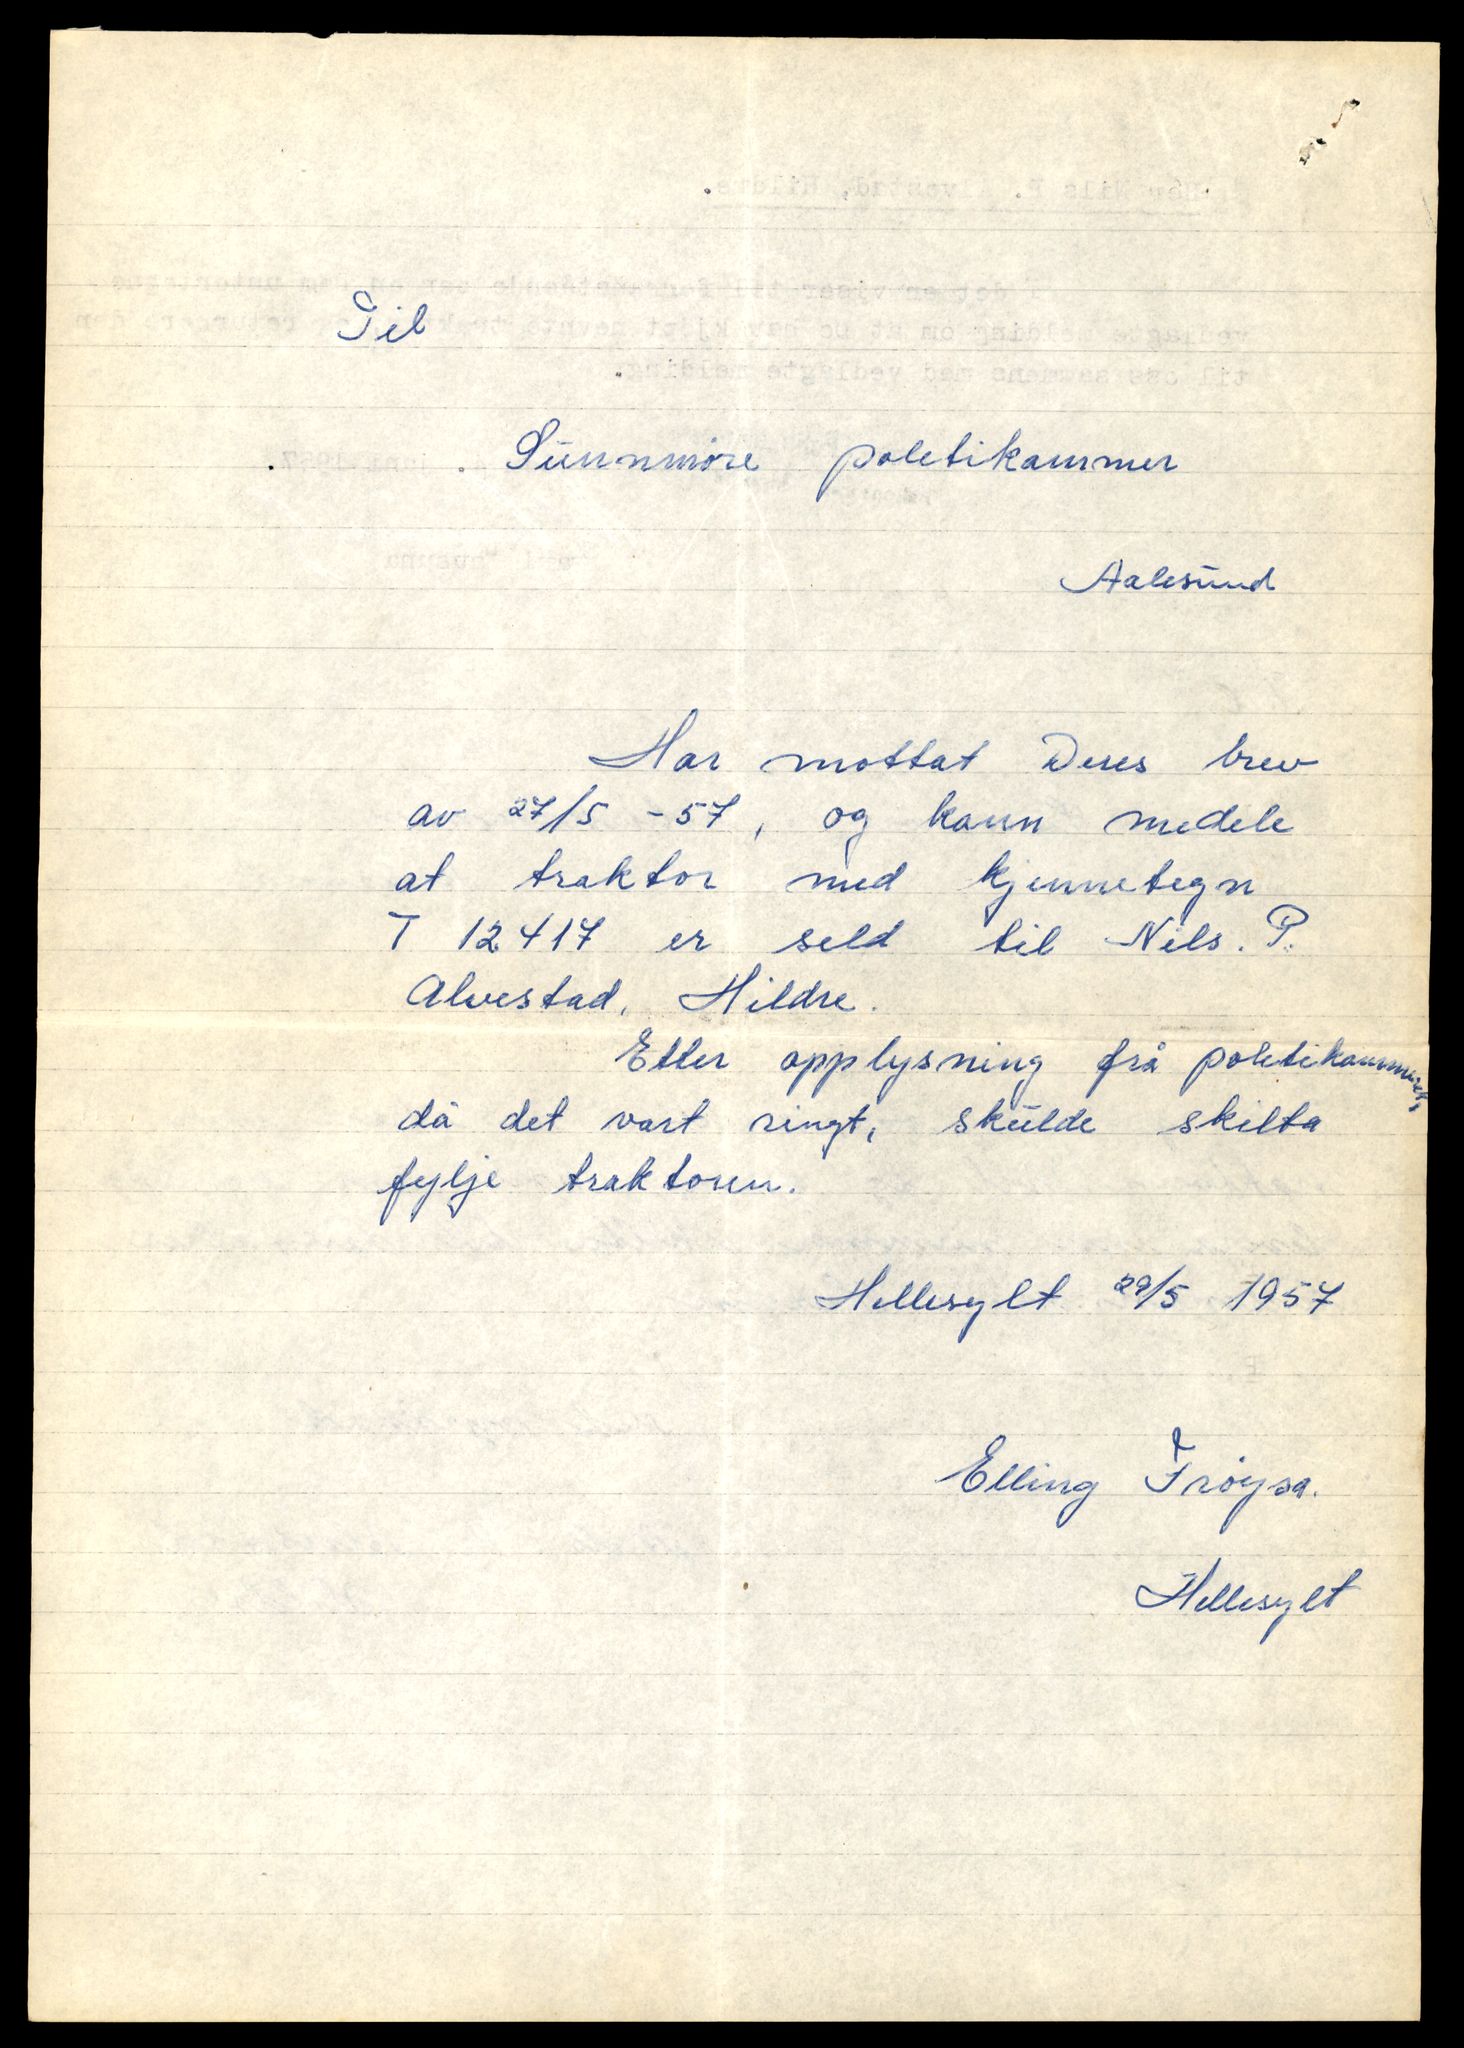 Til
Sunnmöre politikammer
Aalesund
Har mottat Deres brev
av 27/5 - 57, og kann medele
at traktor med kjennetegn
T 12417 er seld til Nils. P.
Alvestad, Hildre.
Etter opplysning frå politikammeret,
då det vart ringt, skulde skilta
fylje traktoren.
Hellesylt 29/5 1957
Elling Frøysa.
Hellesylt